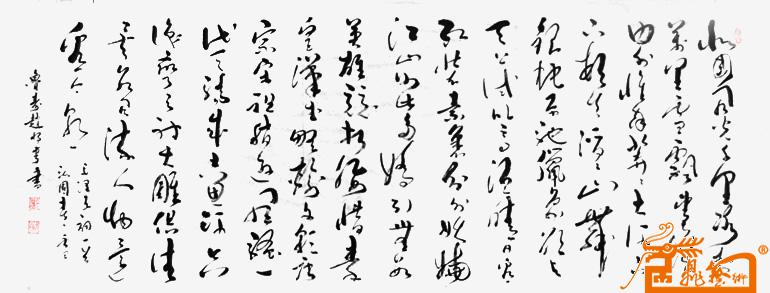 北国风光千里冰封
万里雪飘望长城
内外惟余莽莽大河上
下顿失滔滔山舞
银蛇原驰蜡象欲与
天公试比高须晴日看
红装素裹分外妖娆
江山如此多娇引无数
英雄竞折腰惜秦
皇汉武略输文采唐
宗宋祖稍逊风骚一
代天骄成吉思汗只
识弯弓射大雕俱往
矣数风流人物还
看今朝
毛泽东词一首
沁园春